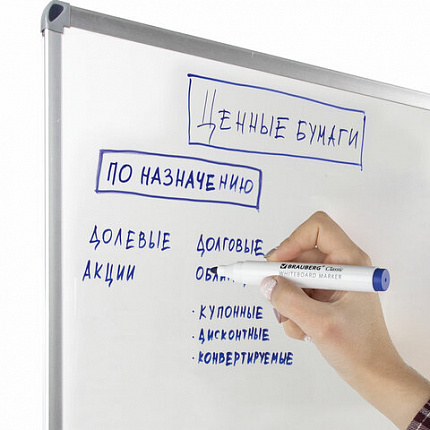 ЦЕННЫЕ БУМАГИ
ПО НАЗНАЧЕНИЮ
ДОЛЕВЫЕ
АКЦИИ
ДОЛГОВЫЕ
· КУПОННЫЕ
· ДИСКОНТНЫЕ
· КОНВЕРТИРУЕМЫЕ
BRAUBERG Classic
WHITEBOARD MARKER